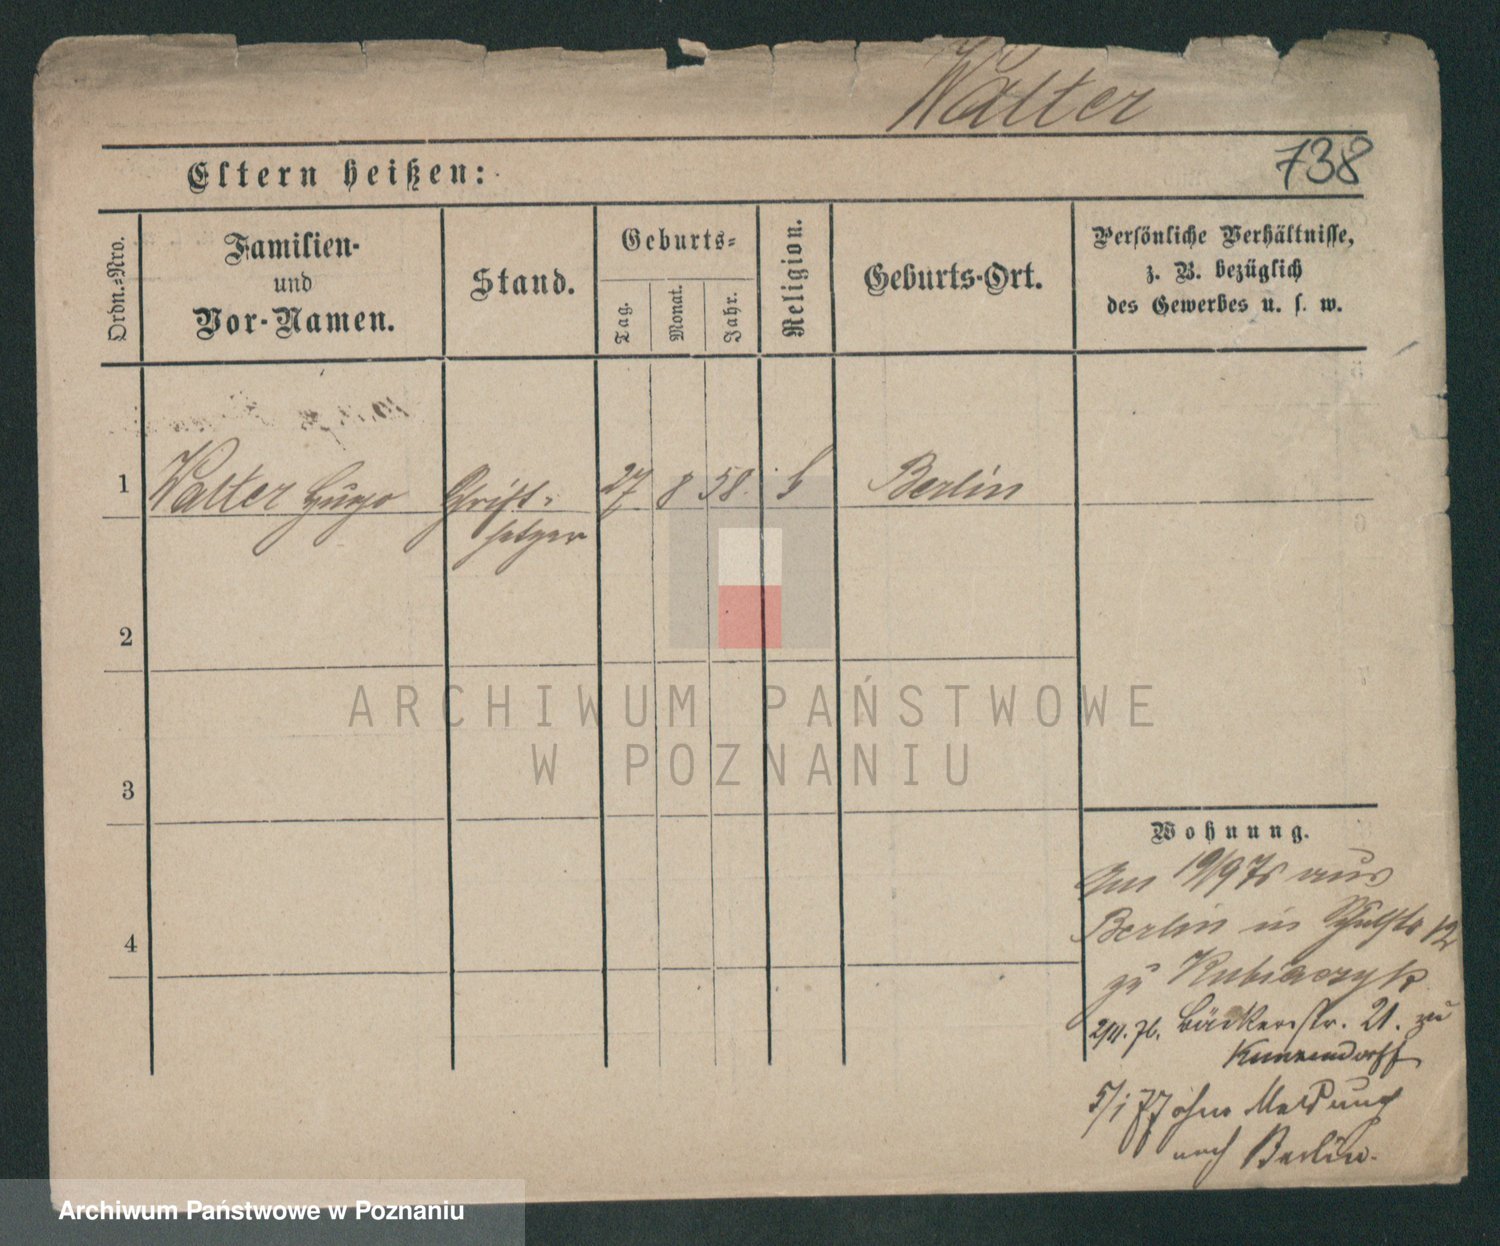 Walter
738
Eltern heißen:
Ordn.-Nro.
Familien-
und
Vor-Namen.
Stand.
Geburts-
Tag.
Monat.
Jahr.
Religion.
Geburts-Ort.
Persönliche Verhältnisse,
z. B. bezüglich
des Gewerbes u. s. w.
1 Walter Hugo Schrift- 27 8 58. Berlin
setzer
2
ARCHIWUM PAŃSTWOWE
W POZNANIU
3
Wohnung.
19/9 76 aus
Berlin in Schulstr 12
zu Kubiaczyk
Bäckerstr. 21. zu
Kunzendorff
4
5/1 77 ohne Meldung
nach Berlin.
Archiwum Państwowe w Poznaniu